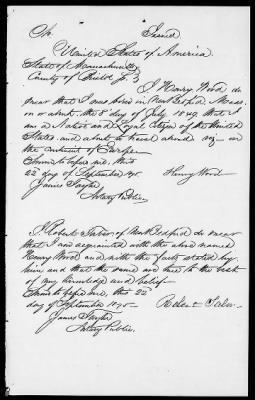 United States of America
State of Massachusetts
County of Bristol ss
I Henry Wood do
swear that I was born in New Bedford Mass.
on or about the 8 day of July 1849 that I
am a Native and Loyal Citizen of the United
States and about to travel abroad
on the Continent of Europe
Sworn to before me, this
22 day of September
Henry Wood
James Taylor
Notary Public
I, Robert of New Bedford do swear
that I am acquainted with the above named
Henry Wood and with the facts stated by
him and that the same are true to the best
of my knowledge and belief
Sworn to before me, this 22
day of September
Robert
James Taylor
Notary Public.